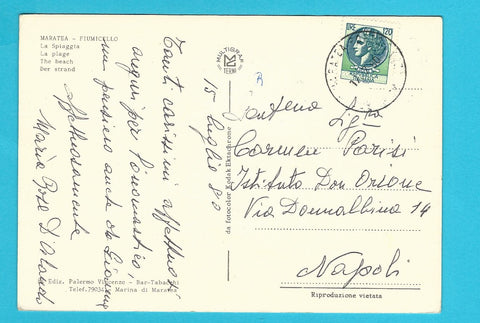 MARATEA - FIUMICELLO
La Spiaggia
La plage
The beach
Der strand
MULTIGRAF
TERNI
LIRE 120
15 luglio 80
Tanti carissimi affettuosi
auguri per l'onomastico,
un pensiero anche da
Affettuosamente
Maria Rosa D'Orlando
Sig.na
Carmen Parisi
Istituto Don Orione
Via Donnalbina 14
Napoli
da fotocolor Kodak Ektachrome
Ediz. Palermo Vincenzo - Bar-Tabacchi
Marina di Maratea
Riproduzione vietata